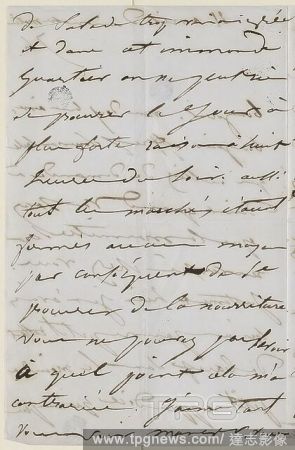 de Salade
et dans cet immonde
quartier on ne peut rien
se procurer le jour à
plus forte raison à huit
heures du soir
tout les marchés étant
fermés aucun moyen
par conséquent de se
procurer de la nourriture
vous ne pouvez pas savoir
à quel point cela m'a
contrariée. J'aime tant
TPG
www.tpgnews.com / 達志影像